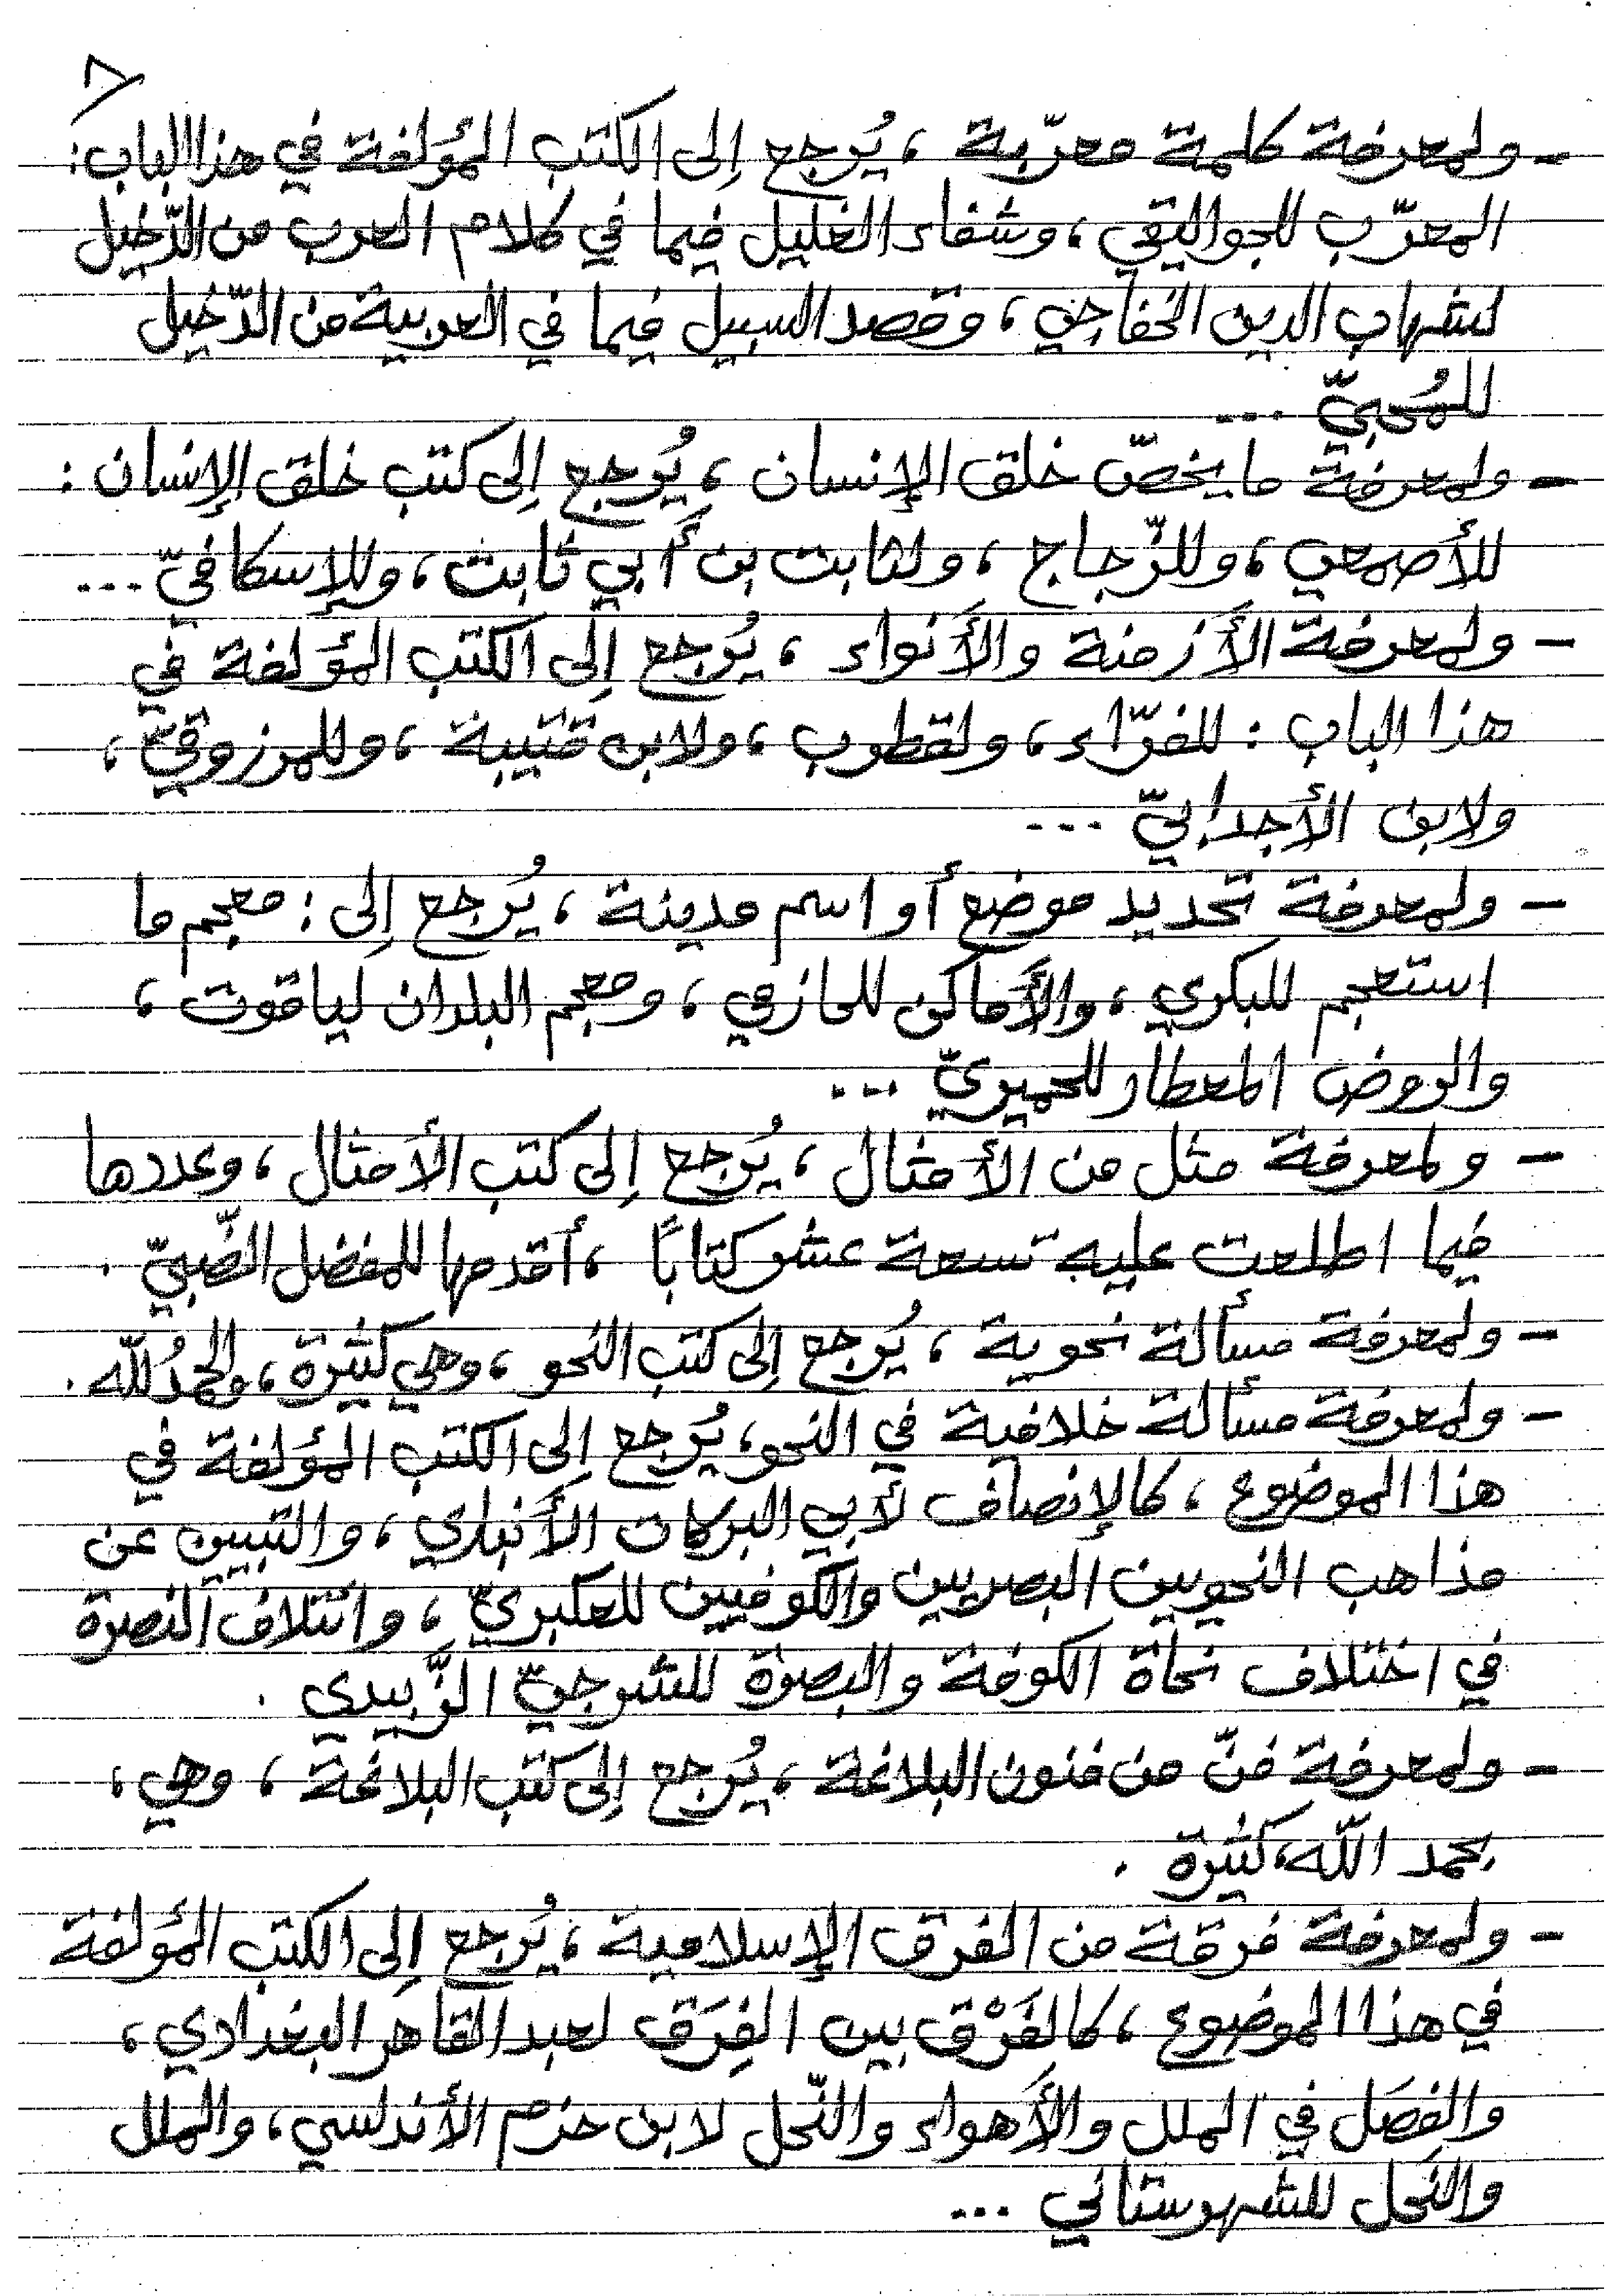 ٨
- ولمعرفة كلمة معرّبة ، يُرجع إلى الكتب المؤلفة في هذا الباب:
المعرّب للجواليقي ، وشفاء الغليل فيما في كلام العرب من الدّخيل
لشهاب الدين الخفاجي ، وقصد السبيل فيما في العربية من الدّخيل
للمُحبيّ ...
- ولمعرفة ما يخصّ خلق الإنسان ، يُرجع إلى كتب خلق الإنسان :
للأصمعي ، وللزّجاج ، ولثابت بن أبي ثابت ، وللإسكافيّ ...
- ولمعرفة الأَزمنة والأَنواء ، يُرجع إلى الكتب المؤلفة في
هذا الباب : للفرّاء ، ولقطرب ، ولابن قتيبة ، وللمرزوقيّ ،
ولابن الأجدابيّ ...
- ولمعرفة تحديد موضع أو اسم مدينة ، يُرجع إلى : معجم ما
استعجم للبكري ، والأَماكن للحازمي ، ومعجم البلدان لياقوت ،
والروض المعطار للحميريّ ...
- ولمعرفة مثل من الأمثال ، يُرجع إلى كتب الأمثال ، وعددها
فيما اطلعت عليه تسعة عشر كتابًا ، أقدمها للمفضل الضّبيّ .
- ولمعرفة مسألة نحوية ، يُرجع إلى كتب النحو ، وهي كثيرة ، والحمدُ للّه .
- ولمعرفة مسألة خلافية في النحو ، يُرجع إلى الكتب المؤلفة في
هذا الموضوع ، كالإنصاف لأبي البركات الأَنباري ، والتبيين عن
مذاهب النحويين البصريين والكوفيين للعكبريّ ، وائتلاف النصرة
في اختلاف نحاة الكوفة والبصرة للشرجيّ الزَّبيدي .
- ولمعرفة فنّ من فنون البلاغة ، يُرجع إلى كتب البلاغة ، وهي ،
بحمد اللّه ، كثيرة .
- ولمعرفة فرقة من الفرق الإسلامية ، يُرجع إلى الكتب المؤلفة
في هذا الموضوع ، كالفَرْق بين الفِرَق لعبد القاهر البغدادي ،
والفِصَل في الملل والأَهواء والنّحل لابن حزم الأندلسي ، والملل
والنّحل للشهرستاني ...